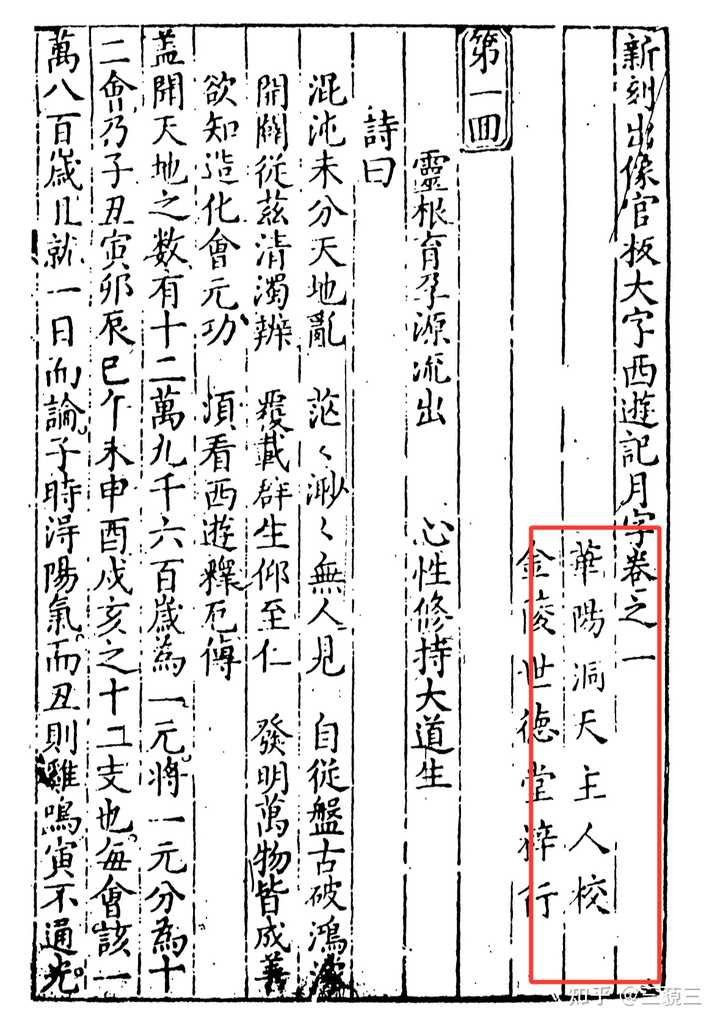 新刻出像官板大字西遊記月字卷之一
華陽洞天主人校
金陵世德堂梓行
第一回
靈根育孕源流出　心性修持大道生
詩曰
混沌未分天地亂　茫〻渺〻無人見　自從盤古破鴻濛
開闢從茲清濁辨　覆載群生仰至仁　發明萬物皆成善
欲知造化會元功　須看西遊釋厄傳
盖聞天地之數有十二萬九千六百歲為一元將一元分為十
二會乃子丑寅卯辰巳午未申酉戌亥之十二支也每會該一
萬八百歲且就一日而論子時得陽氣而丑則雞鳴寅不通光
知乎 @三藐三